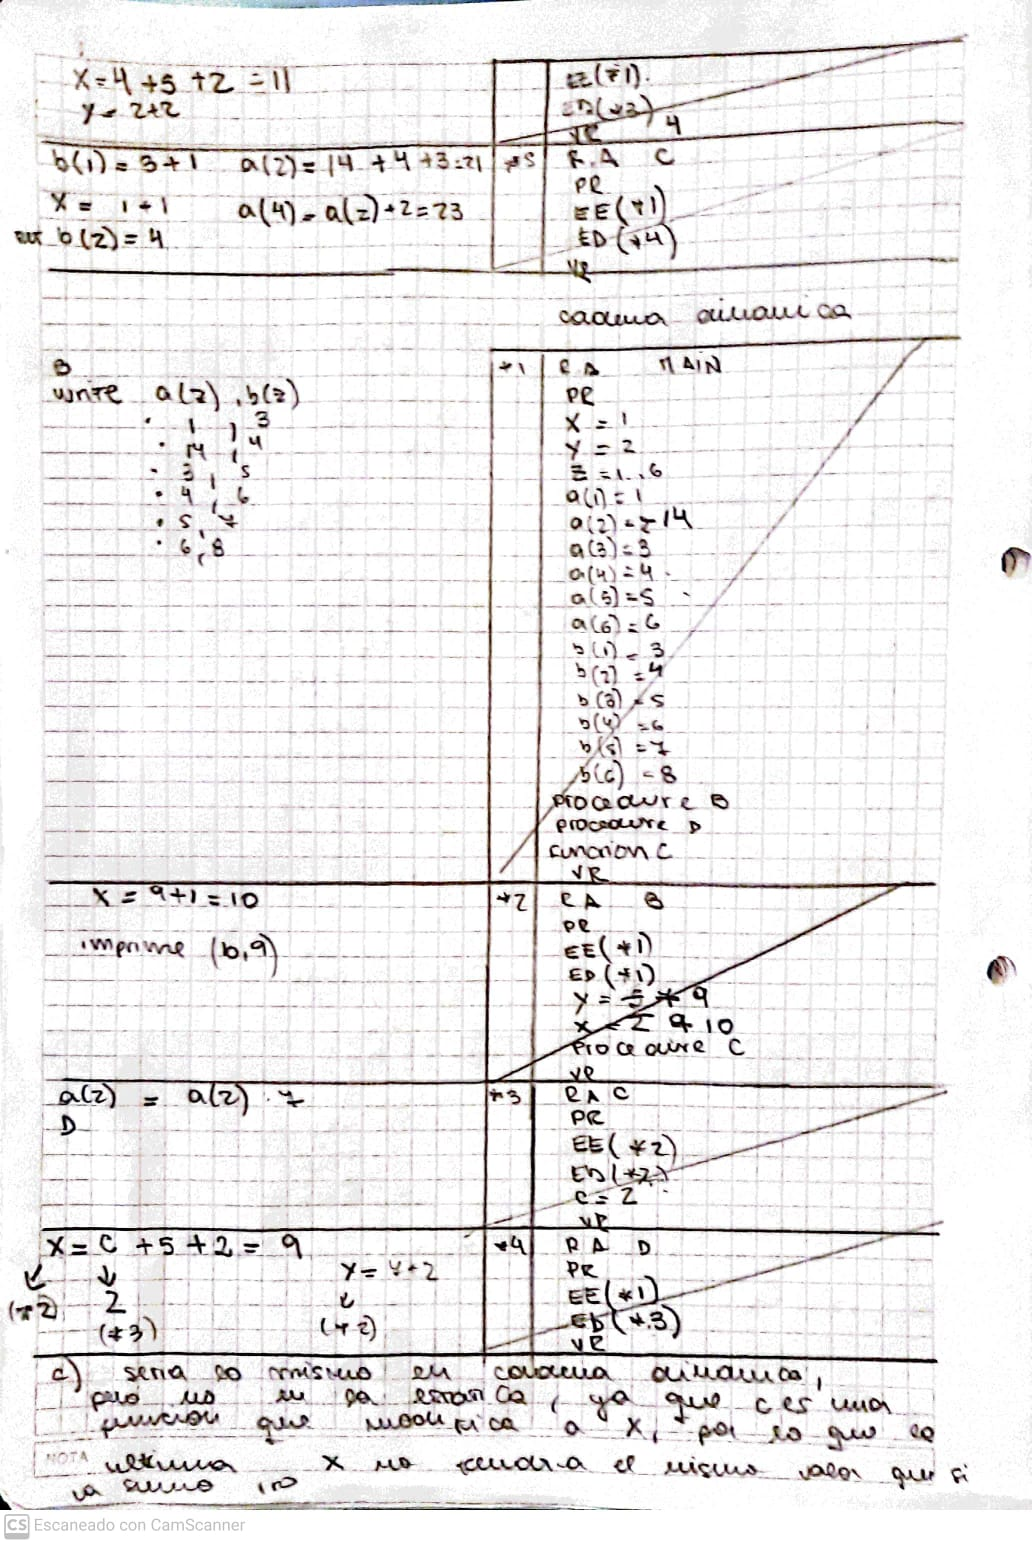 X=4+5+2=11
y= 2+2
EE(*1).
ED(*3)
VR 4
b(1)=3+1 a(2)=14+4+3=21
X= 1+1 a(4)=a(2)+2=23
b(2)=4
*5 R.A C
PR
EE(*1)
ED(*4)
VR
cadena dinamica
B
write a(z), b(z)
. 1, 3
. 14, 4
. 3, 5
. 4, 6
. 5, 7
. 6, 8
*1 RA MAIN
PR
X = 1
Y = 2
Z = 1..6
a(1)=1
a(2)=2 14
a(3)=3
a(4)=4
a(5)=5
a(6)=6
b(1)=3
b(2)=4
b(3)=5
b(4)=6
b(5)=7
b(6)=8
procedure B
procedure D
funcion C
VR
X = 9+1=10
imprime (10,9)
*2 RA B
PR
EE(*1)
ED(*1)
Y = 5 7 9
X = 2 9 10
Procedure C
VR
a(2) = a(2) . 7
D
*3 RA C
PR
EE(*2)
ED(*2)
C= 2
VR
X= C +5+2= 9
Y= 7+2
(*2) 2
(*3) (*2)
*4 RA D
PR
EE(*1)
ED(*3)
VR
c) seria lo mismo en cadena dinamica,
pero no en la estatica, ya que c es una
funcion que modifica a X, por lo que la
NOTA ultima X no tendria el mismo valor que si
la sumo
CS Escaneado con CamScanner